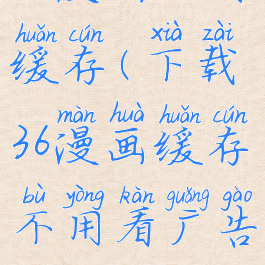 huǎn cún xià zài
缓存(下载
màn huà huǎn cún
36漫画缓存
bù yòng kàn guǎng gào
不用看广告